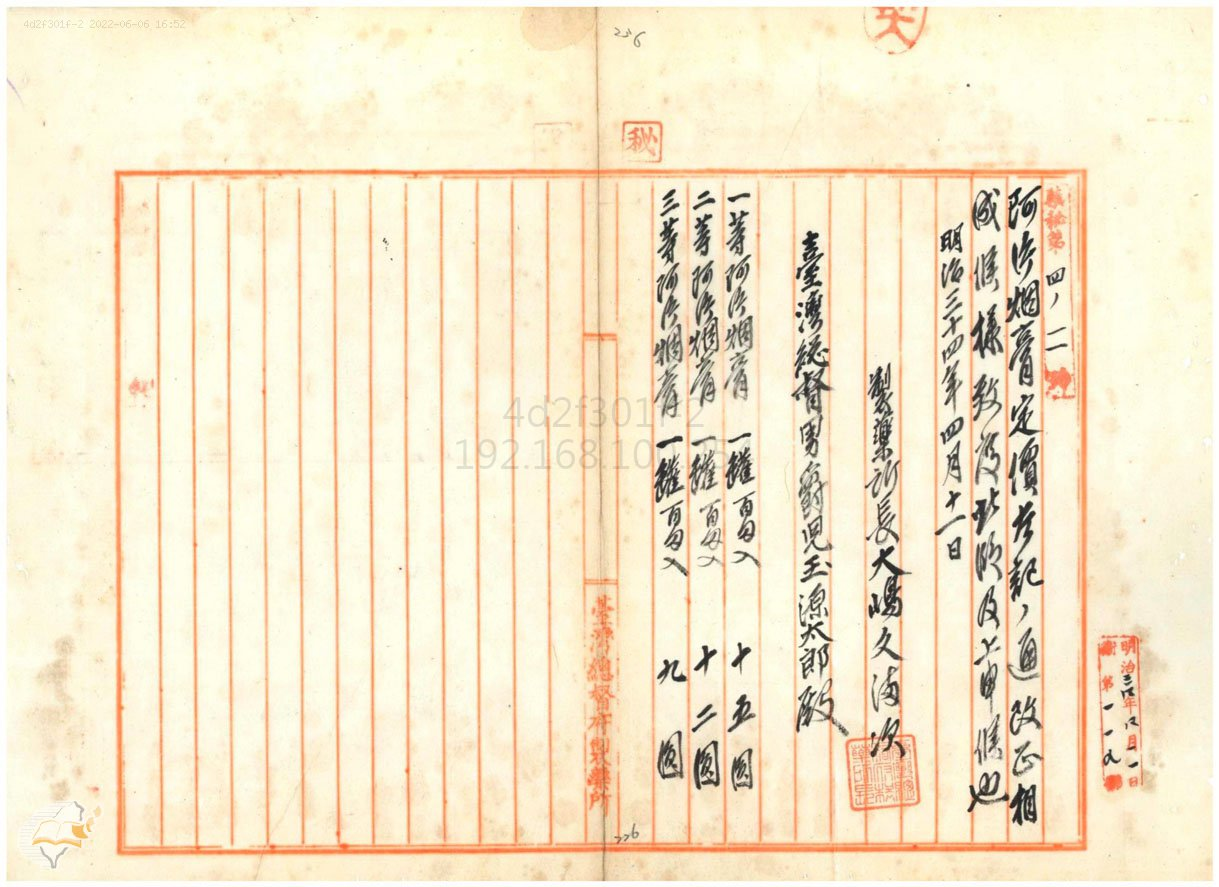 4d2f301f-2 2022-06-06 16:52
226
秘
製秘第四ノ二號
阿片烟膏定價左記ノ通改正相
成候樣致度此段及上申候也
明治三十四年四月十一日
製藥所長大嶋久満次
臺灣總督男爵児玉源太郎殿
一等阿片烟膏 一罐百匁入 十五圓
二等阿片烟膏 一罐百匁入 十二圓
三等阿片烟膏 一罐百匁入 九圓
臺灣總督府製藥所
明治三四年四月一一日
第一一九號
4d2f301f-2
192.168.100.254
226